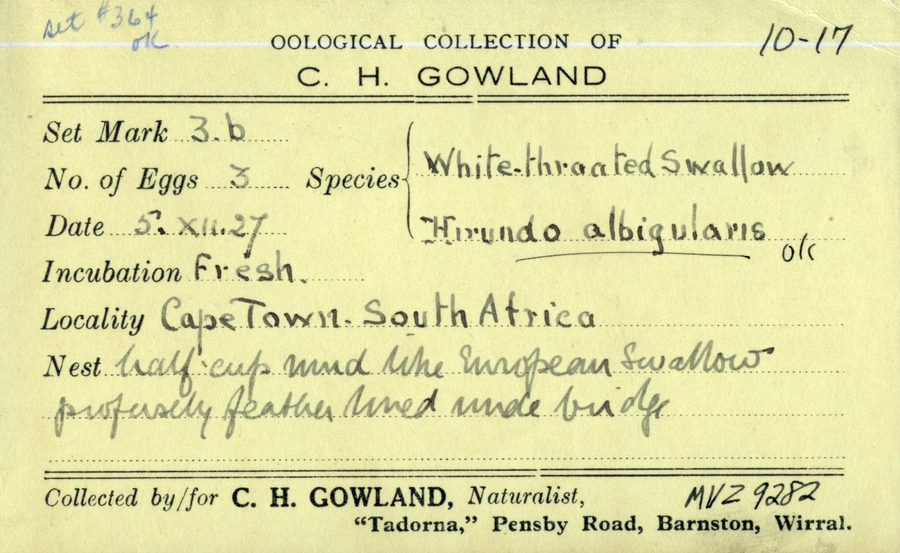 set #364
ok
10-17
OOLOGICAL COLLECTION OF
C. H. GOWLAND
Set Mark 3.b
No. of Eggs 3 Species
White-throated Swallow
Date 5. XII.27
Hirundo albigularis
ok
Incubation Fresh.
Locality Cape Town. South Africa
Nest half cup mud like European Swallow
profusely feather lined unde bridge
Collected by/for C. H. GOWLAND, Naturalist,
MVZ 9282
"Tadorna," Pensby Road, Barnston, Wirral.